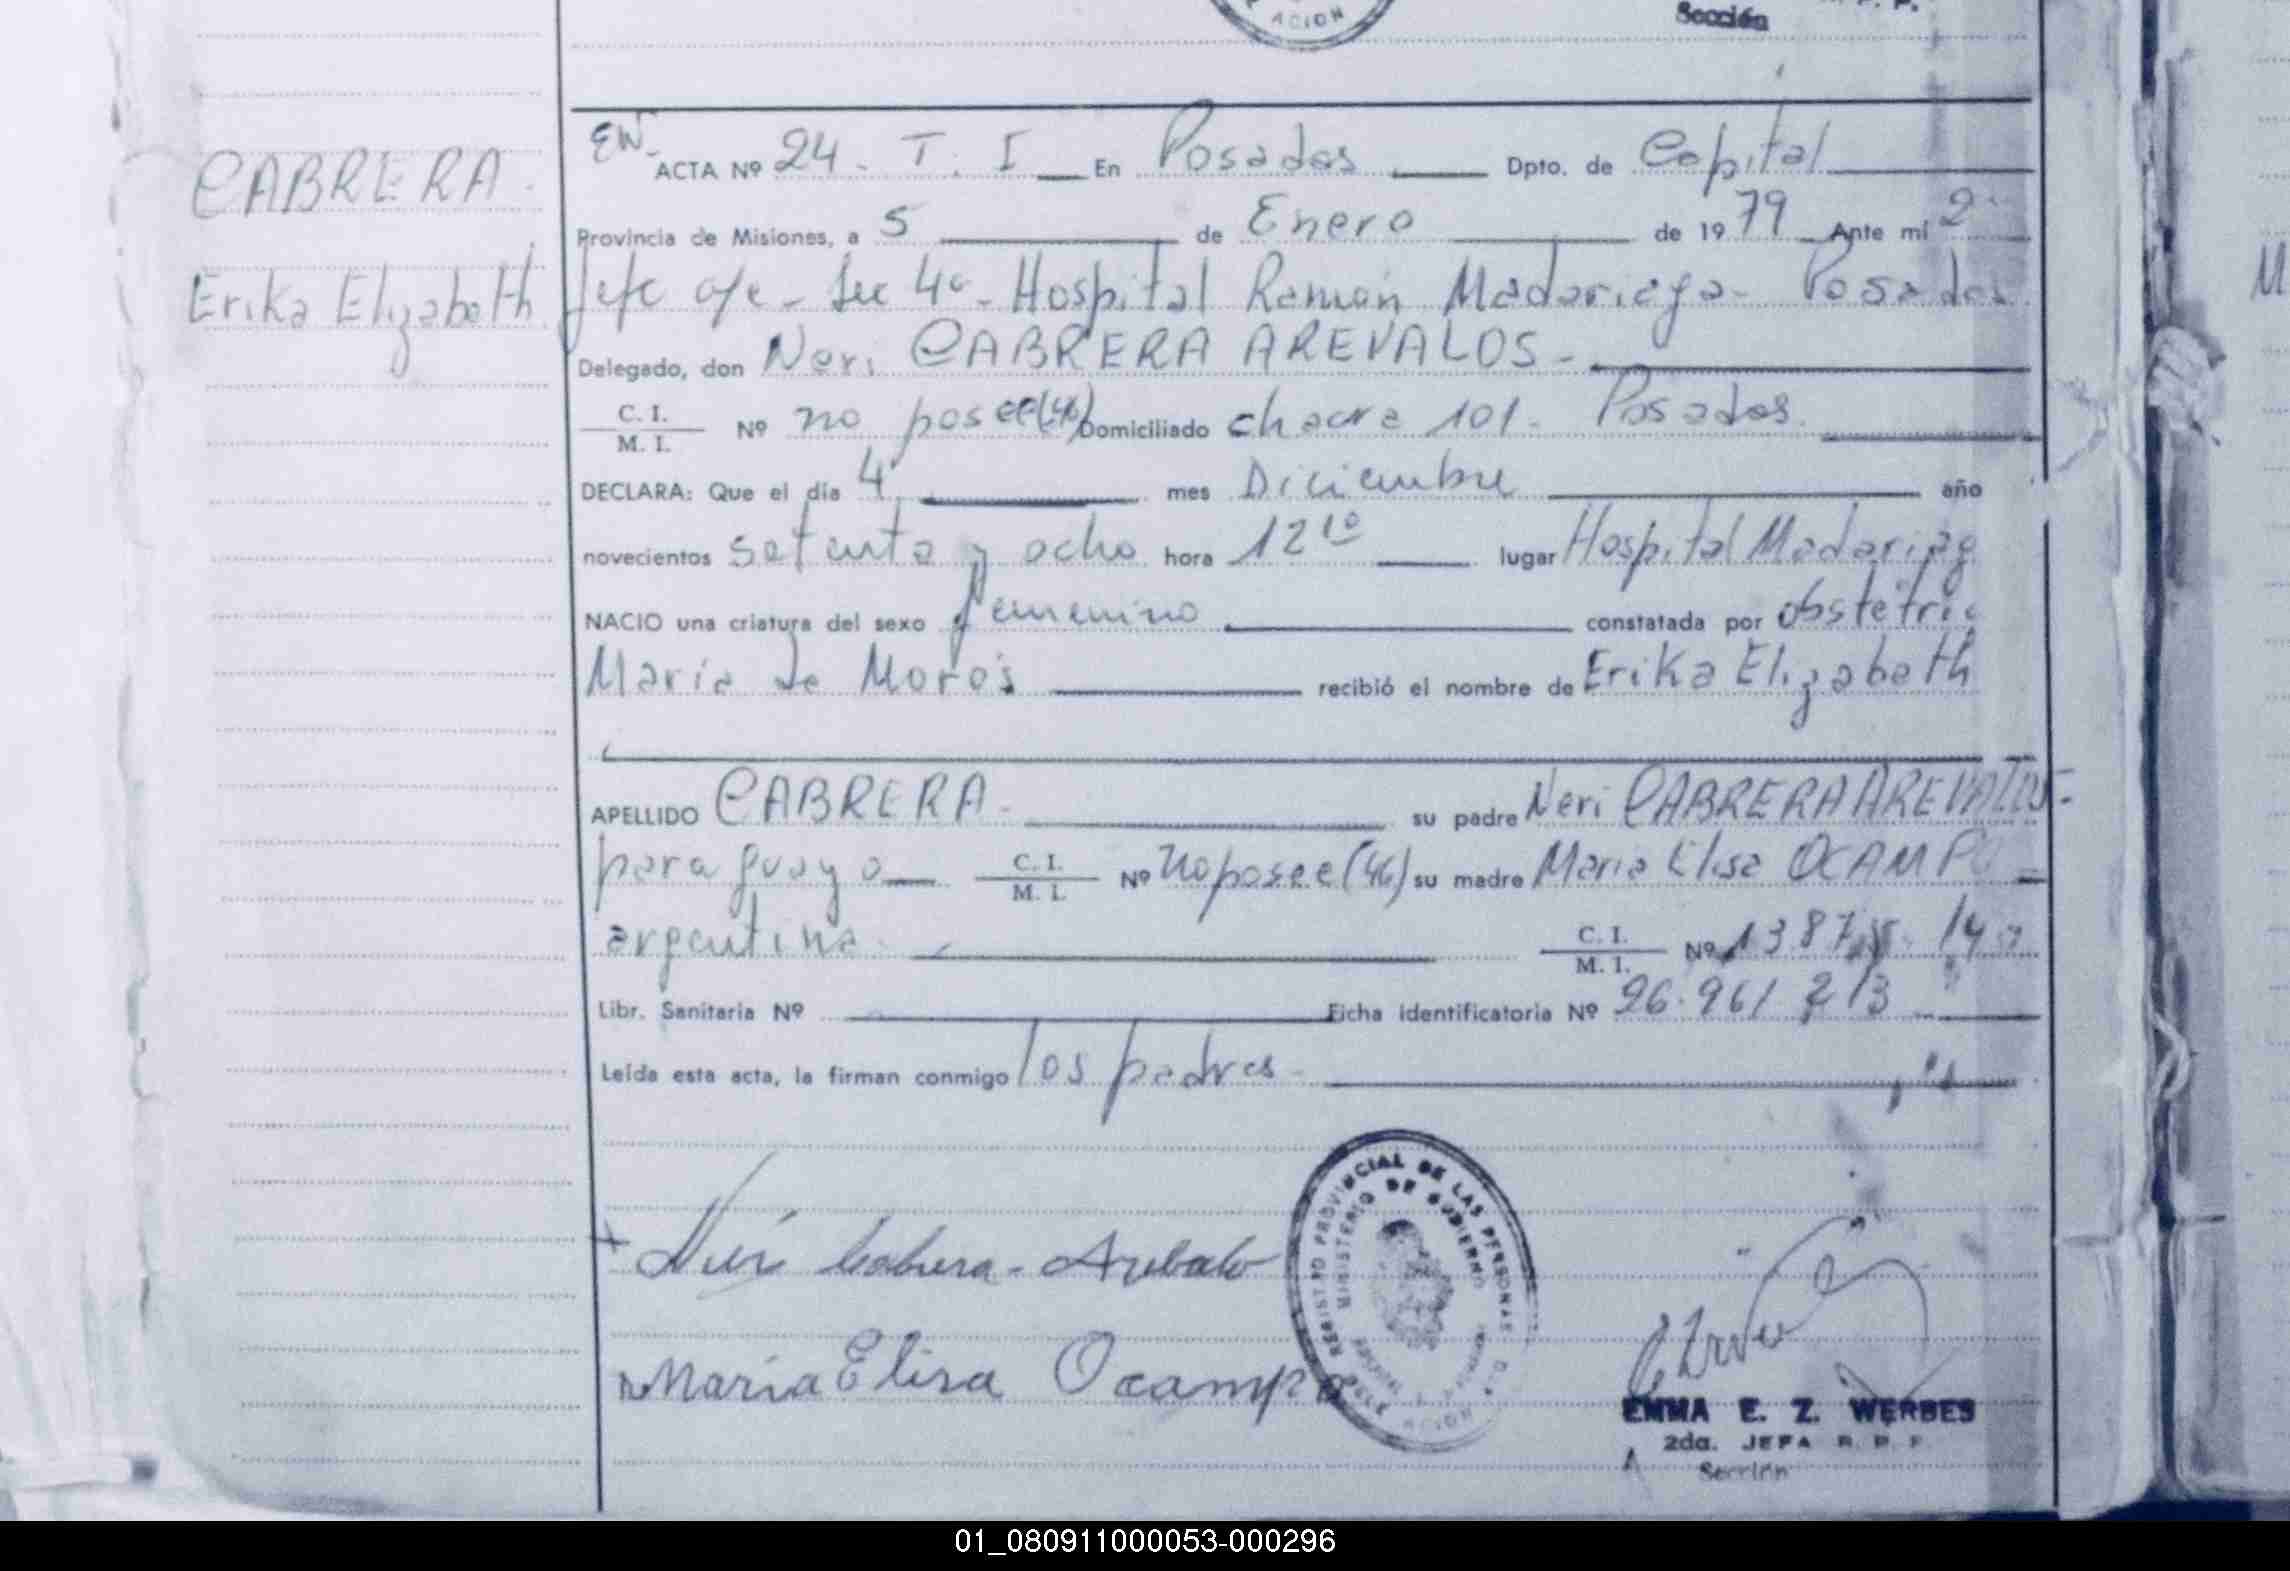 ACION
Sección
EW
ACTA Nº 24 - T. I En Posadas Dpto. de Capital
CABRERA -
Provincia de Misiones, a 5 de Enero de 1979 Ante mi 2ª
Erika Elizabeth
Jefe ofc - Sec 4ª - Hospital Ramón Madariaga - Posadas
Delegado, don Neri CABRERA AREVALOS -
C. I.
M. I.
Nº no posee (46) Domiciliado chacra 101 - Posadas
DECLARA: Que el día 4 mes Diciembre año
novecientos setenta y ocho hora 12 10 lugar Hospital Madariag
NACIO una criatura del sexo femenino constatada por obstetric
María de Moros recibió el nombre de Erika Elizabeth
APELLIDO CABRERA - su padre Neri CABRERA AREVALOS -
paraguayo C. I. M. I. Nº no posee (46) su madre Maria Elisa OCAMPO
argentina C. I. M. I. Nº
Libr. Sanitaria Nº Ficha identificatoria Nº 26.961 213
Leída esta acta, la firman conmigo los padres -
REGISTRO PROVINCIAL DE LAS PERSONAS
MINISTERIO DE GOBIERNO
Neri Cabrera - Arebalo
María Elisa Ocampo
EMMA E. Z. WERBES
2da. JEFA R. P. P.
Sección
01_080911000053-000296